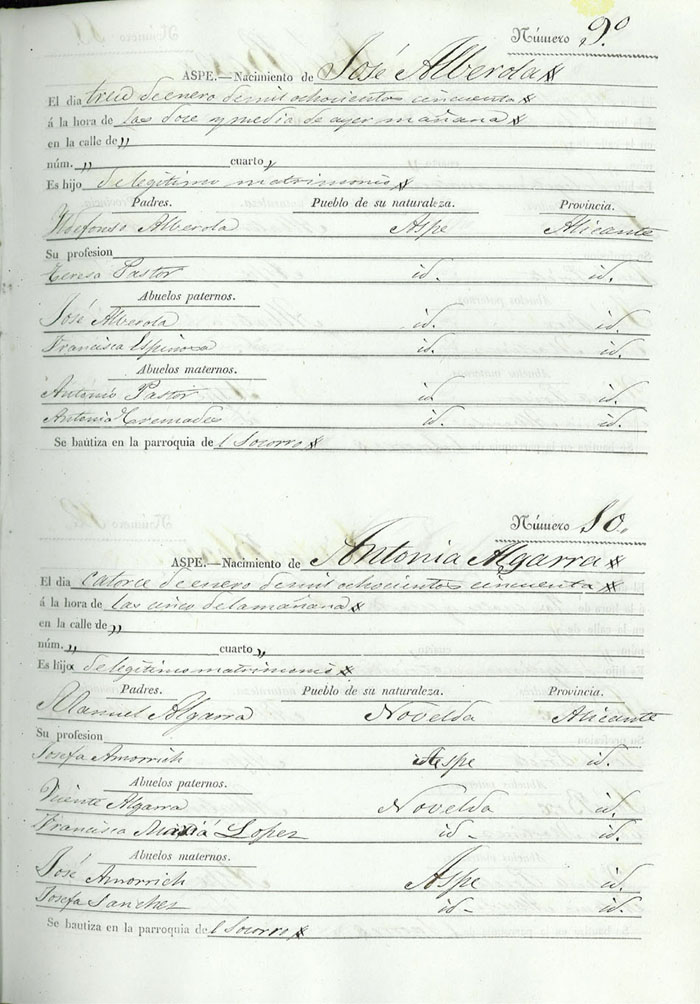 Número 9º
ASPE.—Nacimiento de José Alberola
El dia trece de enero de mil ochocientos cincuenta
á la hora de las doce y media de ayer mañana
en la calle de „
núm. „ cuarto „
Es hijo de legítimo matrimonio
Padres. Pueblo de su naturaleza. Provincia.
Ildefonso Alberola Aspe Alicante
Su profesion
Teresa Pastor id. id.
Abuelos paternos.
José Alberola id. id.
Francisca Espinosa id. id.
Abuelos maternos.
Antonio Pastor id. id.
Antonia Cremades id. id.
Se bautiza en la parroquia de l Socorro
Número 10.
ASPE.—Nacimiento de Antonia Algarra
El dia catorce de enero de mil ochocientos cincuenta
á la hora de las cinco de la mañana
en la calle de „
núm. „ cuarto „
Es hija de legítimo matrimonio
Padres. Pueblo de su naturaleza. Provincia.
Manuel Algarra Novelda Alicante
Su profesion
Josefa Amorrich Aspe id.
Abuelos paternos.
Vicente Algarra Novelda id.
Francisca María Lopez id. id.
Abuelos maternos.
José Amorrich Aspe id.
Josefa Sanchez id. id.
Se bautiza en la parroquia de l Socorro